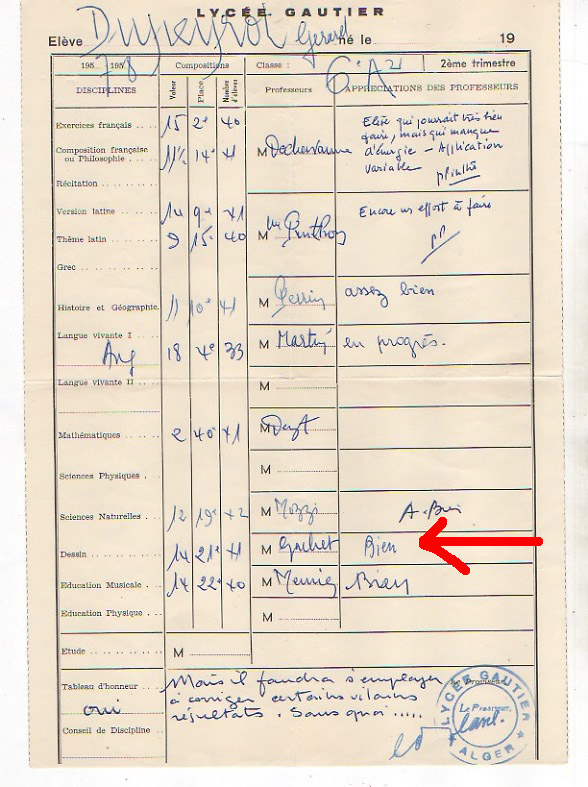 LYCÉE GAUTIER
Elève Gérard né le 19
195 195 7 8 Compositions Classe : 6e A2 2ème trimestre
DISCIPLINES Valeur Place Nombre d'élèves Professeurs APPRÉCIATIONS DES PROFESSEURS
Exercices français 15 2e 40 Elève qui pourrait très bien
Composition française ou Philosophie 11½ 14e 41 M faire, mais qui manque
d'énergie - Application
Récitation variable
Version latine 14 9e 41 Encore un effort à faire
Thème latin 9 15e 40 M
Grec
Histoire et Géographie 11 10e 41 M Perrin assez bien
Langue vivante I Ang 18 4e 33 M Martin en progrès.
Langue vivante II M
Mathématiques 2 40e 41 M
Sciences Physiques M
Sciences Naturelles 12 19e 42 M Mozzi A. Bien
Dessin 14 21e 41 M Gachet Bien
Education Musicale 14 22e 40 M Bien
Education Physique M
Etude M
Tableau d'honneur Mais il faudra s'employer
oui à corriger certains vilains
résultats. Sans quoi .....
Conseil de Discipline
LYCÉE GAUTIER
Le Proviseur,
ALGER